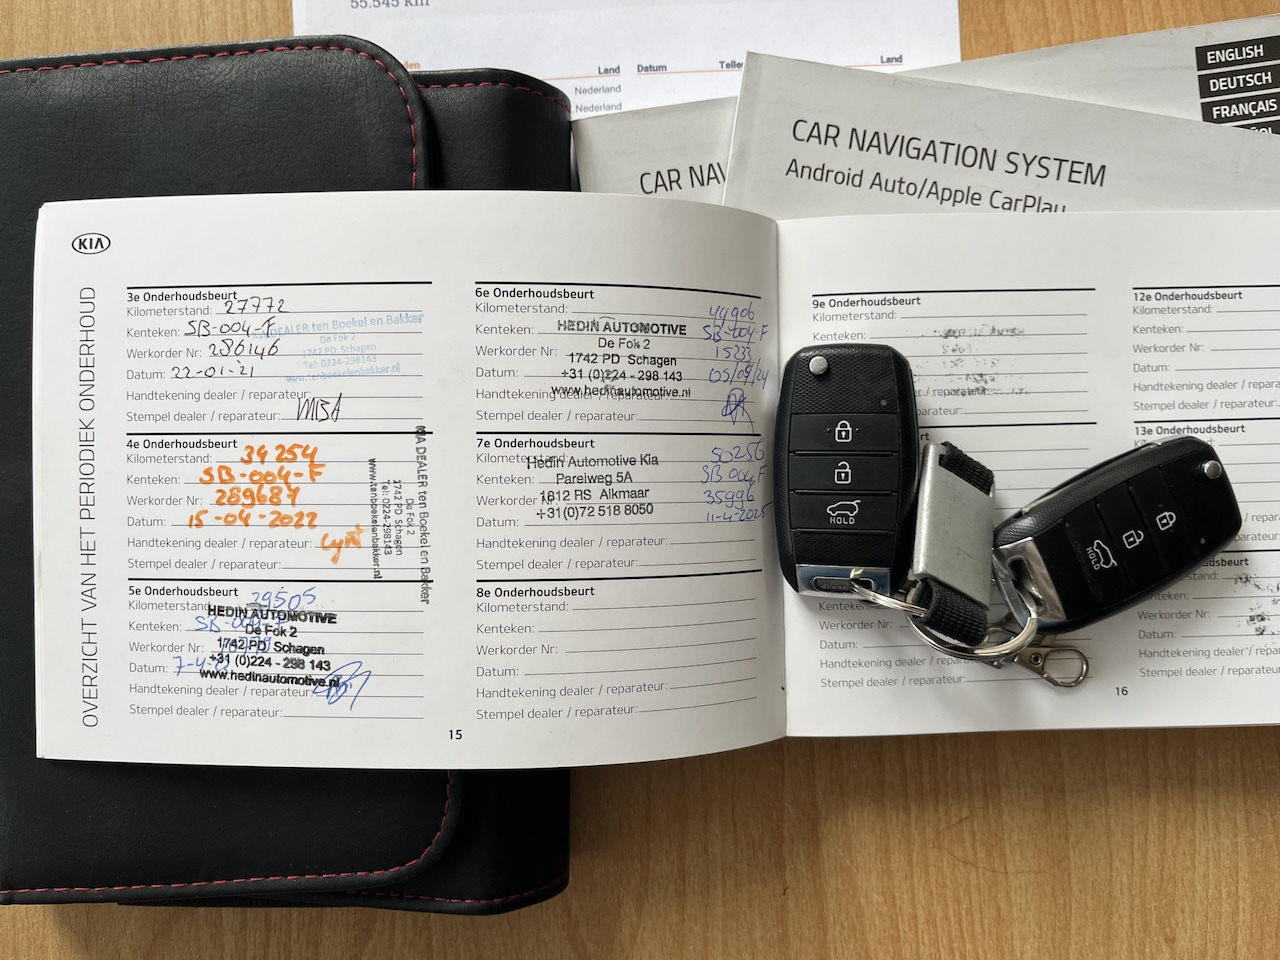 55.545 km
Land
Datum
Nederland
Nederland
ENGLISH
DEUTSCH
FRANÇAIS
CAR NAVIGATION SYSTEM
Android Auto/Apple CarPlay
CAR
KIA
OVERZICHT VAN HET PERIODIEK ONDERHOUD
3e Onderhoudsbeurt
Kilometerstand: 27772
Kenteken: SB-004-F
Werkorder Nr: 286146
Datum: 22-01-21
Handtekening dealer / reparateur:
Stempel dealer / reparateur:
KIA DEALER ten Boekel en Bakker
De Fok 2
1742 PD Schagen
Tel: 0224-298143
www.tenboekelenbakker.nl
4e Onderhoudsbeurt
Kilometerstand: 34254
Kenteken: SB-004-F
Werkorder Nr: 289687
Datum: 15-04-2022
Handtekening dealer / reparateur:
Stempel dealer / reparateur:
KIA DEALER ten Boekel en Bakker
De Fok 2
1742 PD Schagen
Tel: 0224-298143
www.tenboekelenbakker.nl
5e Onderhoudsbeurt
Kilometerstand: 39505
Kenteken: SB-004-F
Werkorder Nr:
Datum: 7-4-
Handtekening dealer / reparateur:
Stempel dealer / reparateur:
HEDIN AUTOMOTIVE
De Fok 2
1742 PD Schagen
+31 (0)224 - 298 143
www.hedinautomotive.nl
15
6e Onderhoudsbeurt
Kilometerstand: 44906
Kenteken: SB-004-F
Werkorder Nr: 15233
Datum: 05/04/24
Handtekening dealer / reparateur:
Stempel dealer / reparateur:
HEDIN AUTOMOTIVE
De Fok 2
1742 PD Schagen
+31 (0)224 - 298 143
www.hedinautomotive.nl
7e Onderhoudsbeurt
Kilometerstand: 50256
Kenteken: SB 004 F
Werkorder Nr: 35996
Datum: 11-4-2025
Handtekening dealer / reparateur:
Stempel dealer / reparateur:
Hedin Automotive Kia
Parelweg 5A
1812 RS Alkmaar
+31(0)72 518 8050
8e Onderhoudsbeurt
Kilometerstand:
Kenteken:
Werkorder Nr:
Datum:
Handtekening dealer / reparateur:
Stempel dealer / reparateur:
9e Onderhoudsbeurt
Kilometerstand:
Kenteken:
HOLD
HOLD
Werkorder Nr:
Datum:
Handtekening dealer / reparateur:
Stempel dealer / reparateur:
12e Onderhoudsbeurt
Kilometerstand:
Kenteken:
Werkorder Nr:
Datum:
Handtekening dealer /
Stempel dealer / reparateur:
13e Onderhoudsbeurt
Kenteken:
Werkorder Nr:
Datum:
Handtekening dealer /
Stempel dealer / reparateur:
16